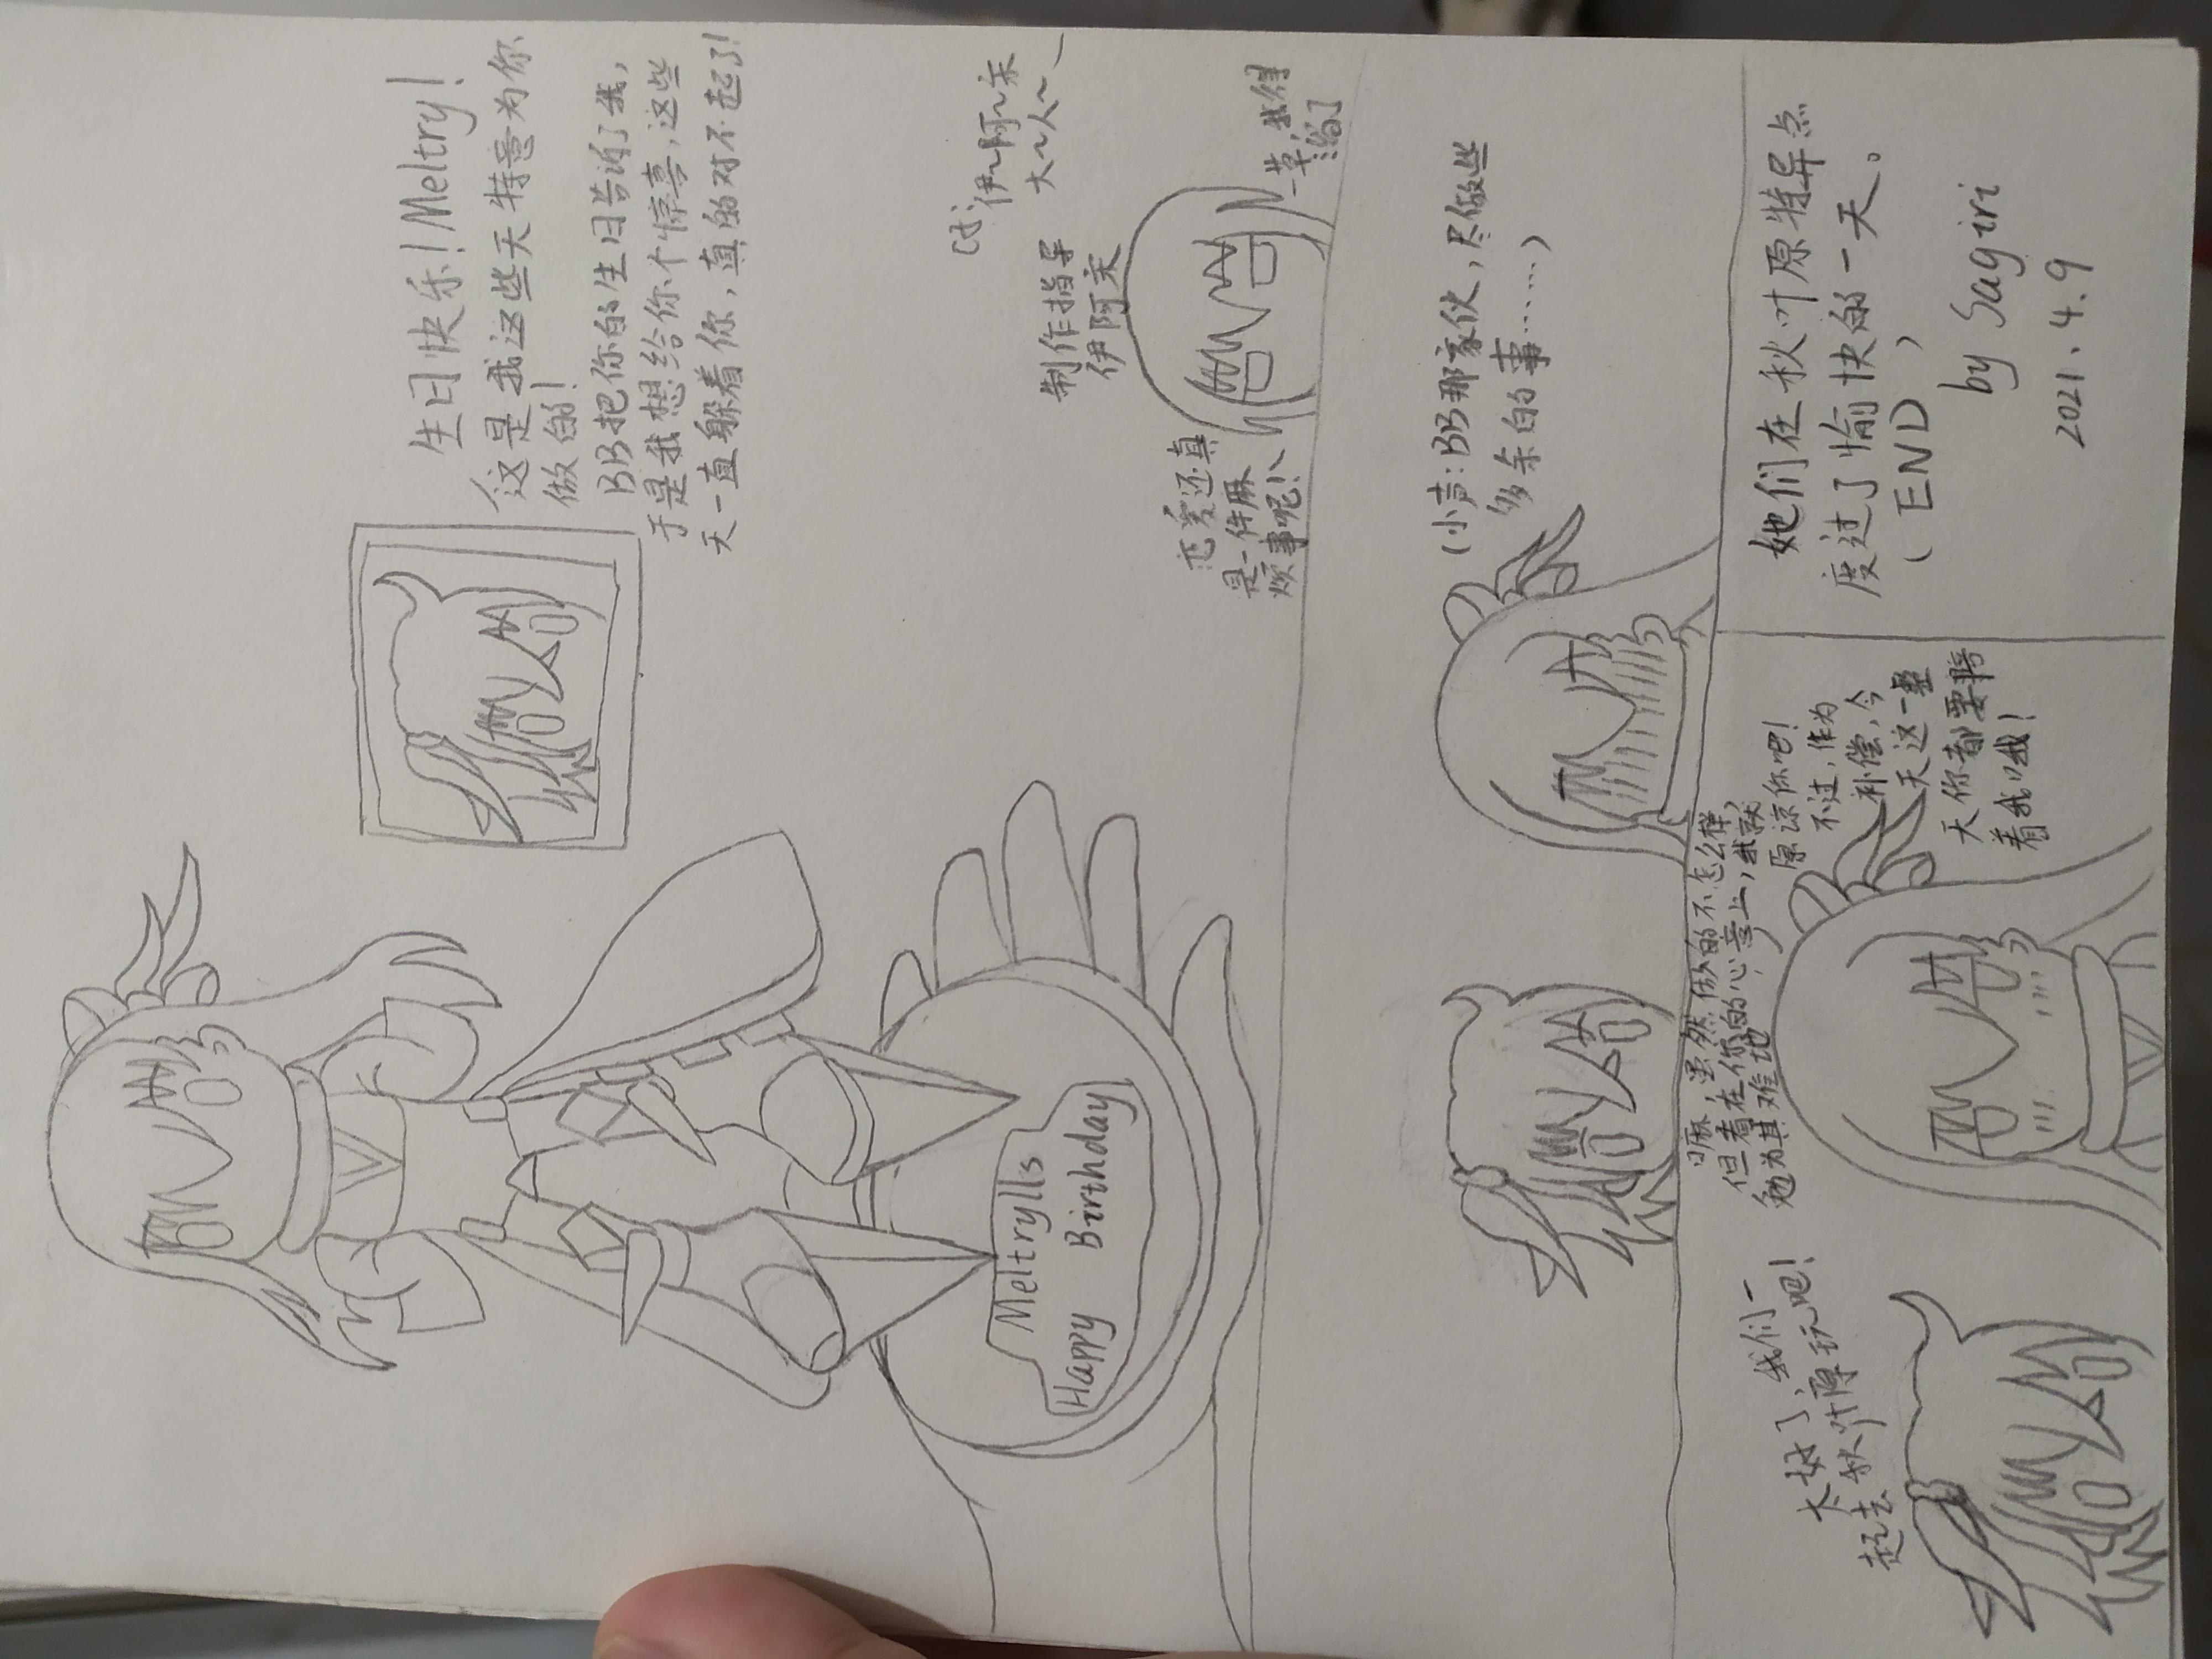 生日快乐!Meltry!
这是我这些天特意为你
做的!
BB把你的生日告诉了我,
于是我想给你个惊喜,这些
天一直躲着你,真的对不起了!
Meltrylls
Happy Birthday
cd:伊~阿~宋
大~人~
制作指导
伊阿宋
恋爱还真
是一件麻
烦事呢!
草,我得
溜了
(小声:BB那家伙,尽做些
多余的事……)
嘛,虽然做的不怎么样,
但看在你的心意上,我就
勉为其难地原谅你吧!
不过,作为
补偿,今
天这一整
天你都要陪
着我哦!
太好了,我们一
起去秋叶原玩吧!
她们在秋叶原特异点
度过了愉快的一天。
(END)
by Sagiri
2021.4.9